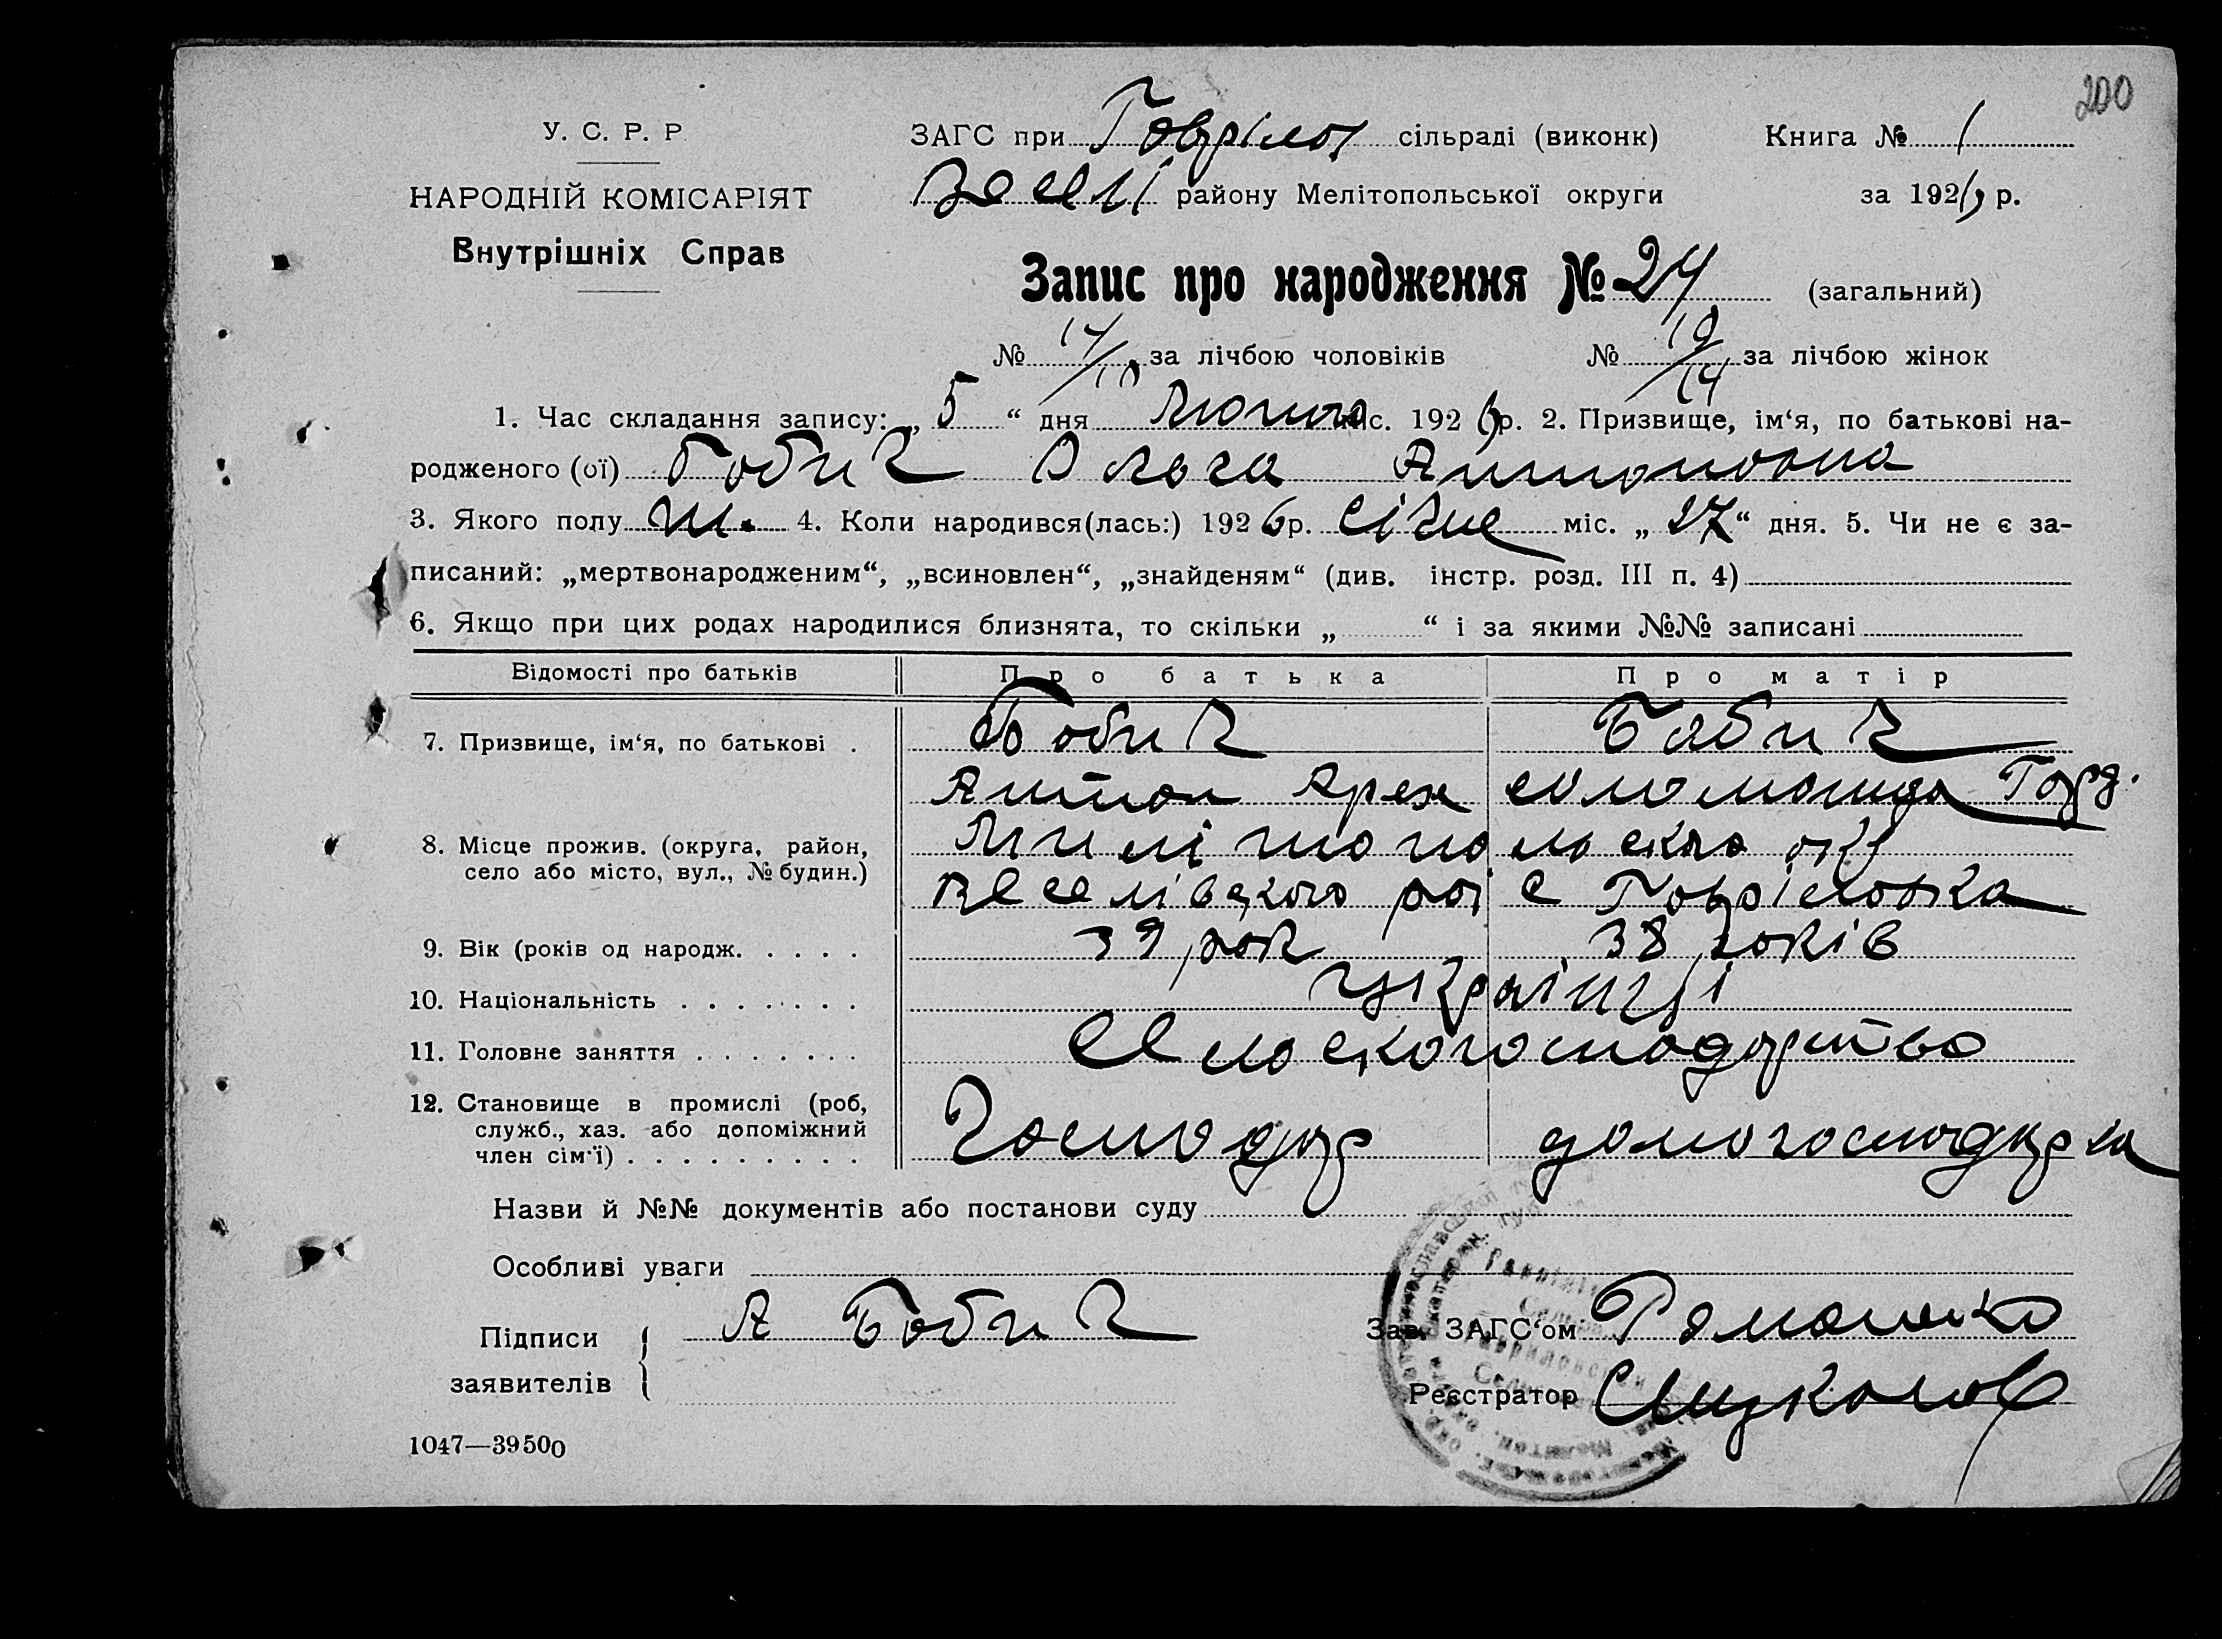 200
У. С. Р. Р.
НАРОДНІЙ КОМІСАРІЯТ
Внутрішніх Справ
ЗАГС при Гаврілов сільраді (виконк) Книга № 1
Веселі району Мелітопольської округи за 1926 р.
Запис про народження № 24 (загальний)
№ за лічбою чоловіків № за лічбою жінок
1. Час складання запису: „ 5 “ дня Лютого міс. 1926 р. 2. Призвище, ім‘я, по батькові на-
родженого (ої) Бабич Ольга Антоновна
3. Якого полу ж. 4. Коли народився(лась:) 1926 р. січне міс. „ 27 “ дня. 5. Чи не є за-
писаний: „мертвонародженим“, „всиновлен“, „знайденям“ (див. інстр. розд. III п. 4)
6. Якщо при цих родах народилися близнята, то скільки „ “ і за якими №№ записані
Відомості про батьків Про батька Про матір
7. Призвище, ім‘я, по батькові . Бабич Бабич
Антон Арех Соломонида Горд.
8. Місце прожив. (округа, район, село або місто, вул., № будин.) Милітопольского окр
Веселівского рай с Гавріловка
9. Вік (років од народж. . . . . 39 рок 38 років
10. Національність . . . . . . . українці
11. Головне заняття . . . . . . . Сельскогосподарство
12. Становище в промислі (роб, служб., хаз. або допоміжний член сім‘ї) . . . . . . . . . Господар домогосподарка
Назви й №№ документів або постанови суду
Особливі уваги
Підписи заявителів А Бабич
Зав. ЗАГС‘ом Романенко
Реєстратор
1047—39500